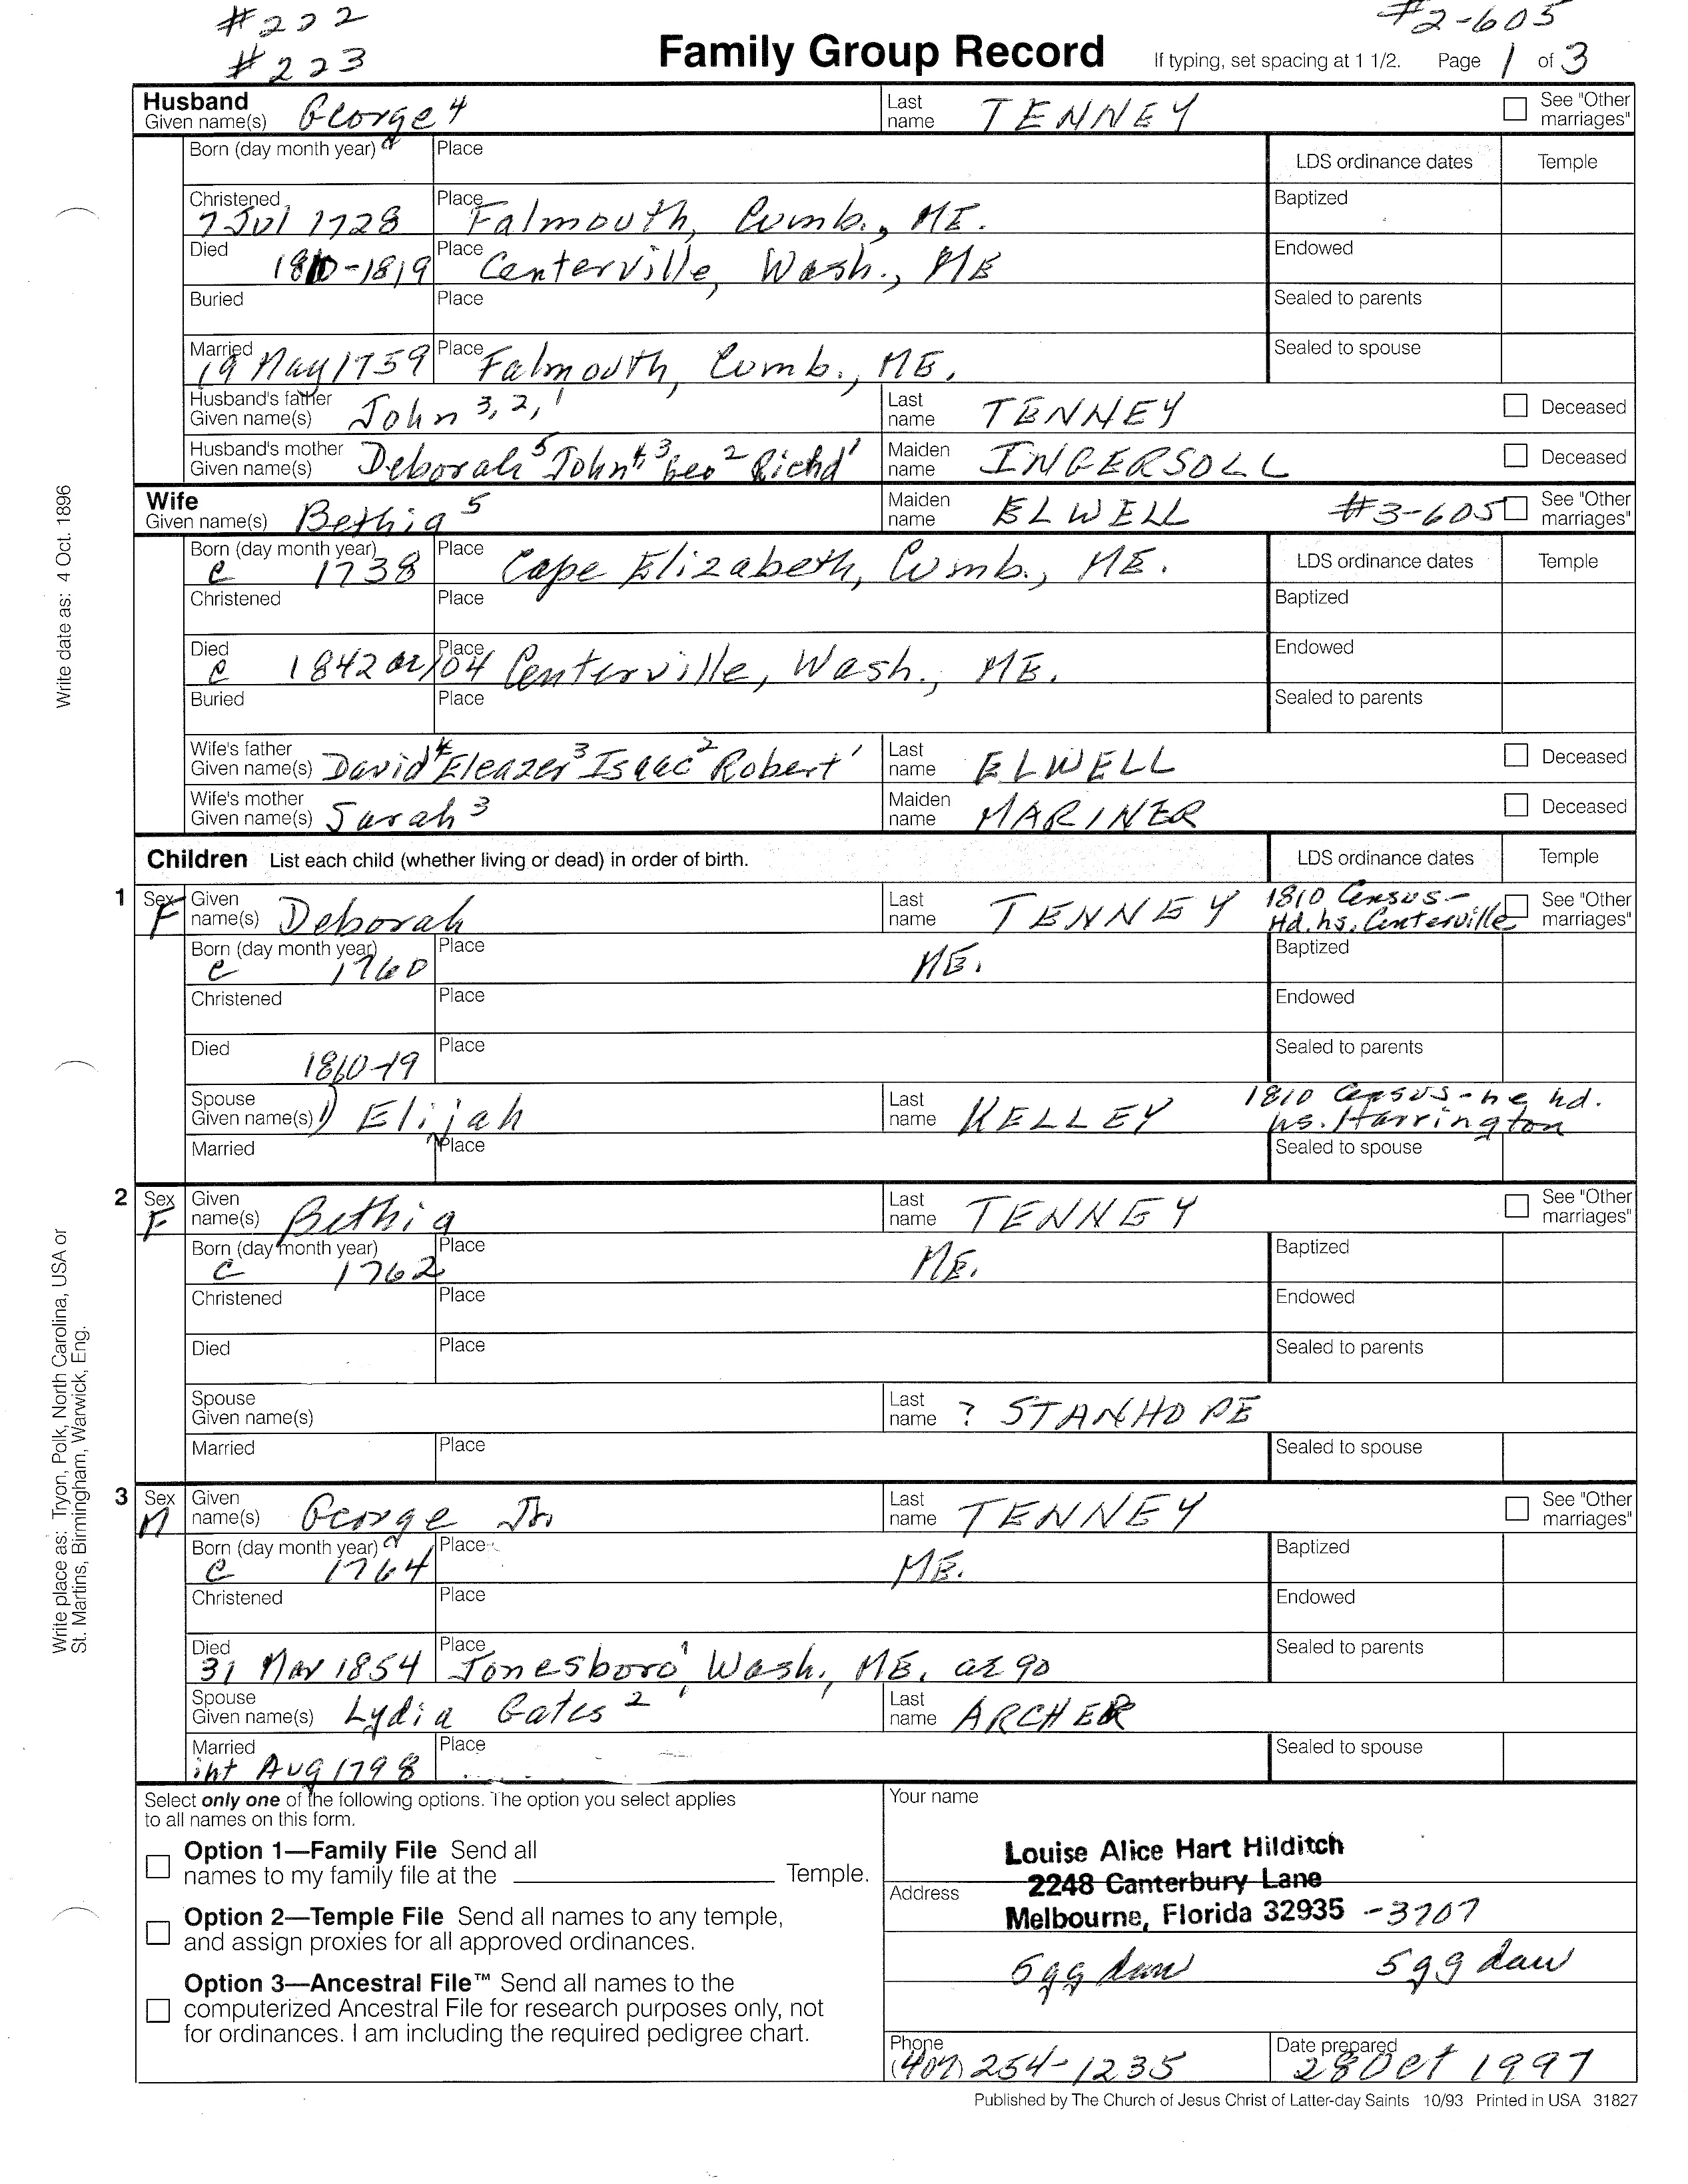 #222 #2-605
#223 Family Group Record If typing, set spacing at 1 1/2. Page 1 of 3
Husband Given name(s) George 4 Last name TENNEY See "Other marriages"
Born (day month year) Place LDS ordinance dates Temple
Christened 7 Jul 1728 Place Falmouth, Cumb., ME. Baptized
Died 1810-1819 Place Centerville, Wash., ME Endowed
Buried Place Sealed to parents
Married 19 May 1759 Place Falmouth, Cumb., ME. Sealed to spouse
Husband's father Given name(s) John 3, 2, 1 Last name TENNEY Deceased
Husband's mother Given name(s) Deborah 5 John 4 3 Geo 2 Richd 1 Maiden name INGERSOLL Deceased
Wife Given name(s) Bethia 5 Maiden name ELWELL #3-605 See "Other marriages"
Born (day month year) c 1738 Place Cape Elizabeth, Cumb., ME. LDS ordinance dates Temple
Christened Place Baptized
Died c 1842 ae 104 Place Centerville, Wash., ME. Endowed
Buried Place Sealed to parents
Wife's father Given name(s) David 4 Eleazer 3 Isaac 2 Robert 1 Last name ELWELL Deceased
Wife's mother Given name(s) Sarah 3 Maiden name MARINER Deceased
Children List each child (whether living or dead) in order of birth. LDS ordinance dates Temple
1 Sex F Given name(s) Deborah Last name TENNEY 1810 Census - Hd. hs. Centerville See "Other marriages"
Born (day month year) c 1760 Place ME. Baptized
Christened Place Endowed
Died 1810-19 Place Sealed to parents
Spouse Given name(s) 1) Elijah Last name KELLEY 1810 Census - he hd. hs. Harrington
Married Place Sealed to spouse
2 Sex F Given name(s) Bethia Last name TENNEY See "Other marriages"
Born (day month year) c 1762 Place ME. Baptized
Christened Place Endowed
Died Place Sealed to parents
Spouse Given name(s) Last name ? STANHOPE
Married Place Sealed to spouse
3 Sex M Given name(s) George Jr Last name TENNEY See "Other marriages"
Born (day month year) c 1764 Place ME. Baptized
Christened Place Endowed
Died 31 Mar 1854 Place Jonesboro, Wash., ME, ae 90 Sealed to parents
Spouse Given name(s) Lydia Gates 2 Last name ARCHER
Married int Aug 1798 Place Sealed to spouse
Select only one of the following options. The option you select applies
to all names on this form.
Option 1—Family File Send all
names to my family file at the Temple.
Option 2—Temple File Send all names to any temple,
and assign proxies for all approved ordinances.
Option 3—Ancestral File™ Send all names to the
computerized Ancestral File for research purposes only, not
for ordinances. I am including the required pedigree chart.
Your name
Louise Alice Hart Hilditch
Address 2248 Canterbury Lane
Melbourne, Florida 32935 -3707
5gg dau 5gg dau
Phone (407) 254-1235 Date prepared 28 Oct 1997
Published by The Church of Jesus Christ of Latter-day Saints 10/93 Printed in USA 31827
Write date as: 4 Oct. 1896
Write place as: Tryon, Polk, North Carolina, USA or
St. Martins, Birmingham, Warwick, Eng.